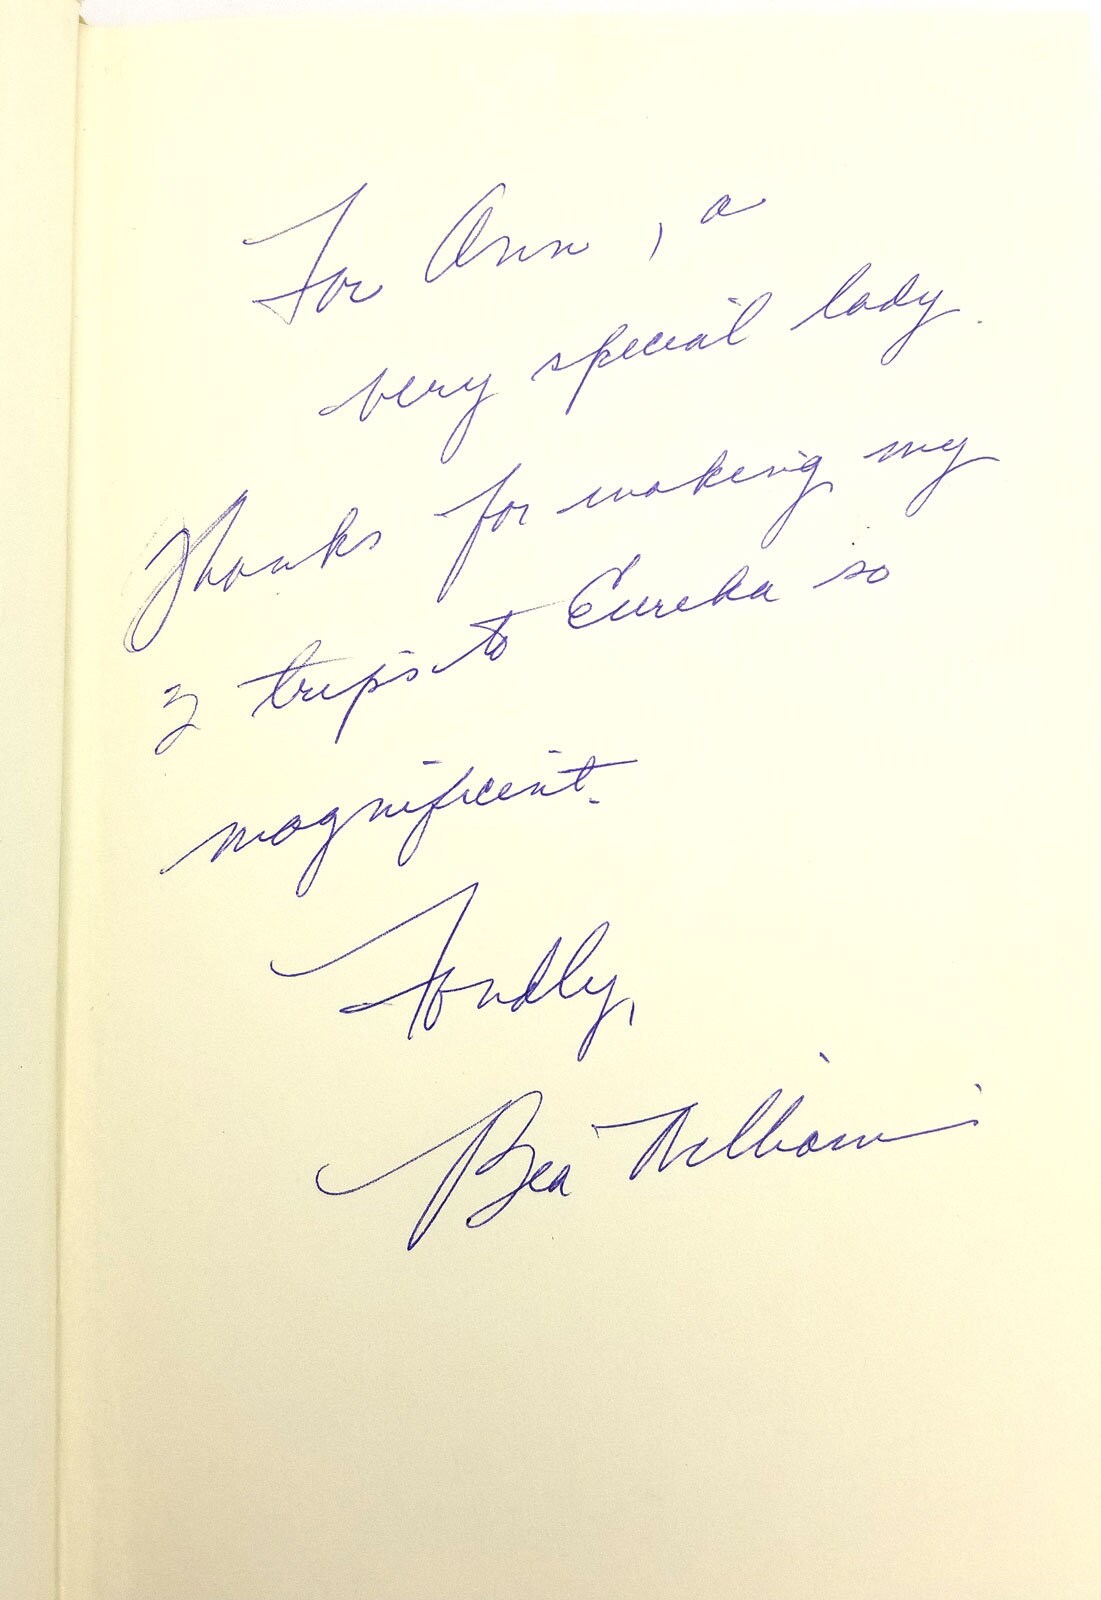 For Ann, a
very special lady.
Thanks for making my
3 trips to Eureka so
magnificent.
Fondly,
Bea Williams